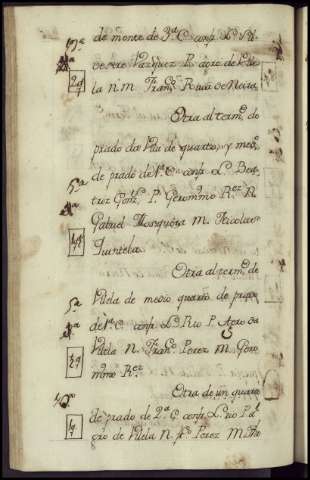 de monte de 3ª C. conf. L.
Vazquez P. agro de Vile
la n. m. Franc.º
Otra al term.º do
prado da Vila de quarto, y med.º
de prado de 1ª C. conf. L. Bea
triz Gonz. P. Geronimo R.ez N.
Gabriel Mosquera M. Nicolas
Quintela
Otra al term.º de
Vilela de medio quarto de prado
de 1ª C. conf. L. Rio P. Agro da
Vilela N. Franc.º Perez M. Gero
nimo R.ez
Otra de un quarto
de prado de 2ª C. conf. L. rio P. A
gro de Vilela N. F.co Perez M. dho